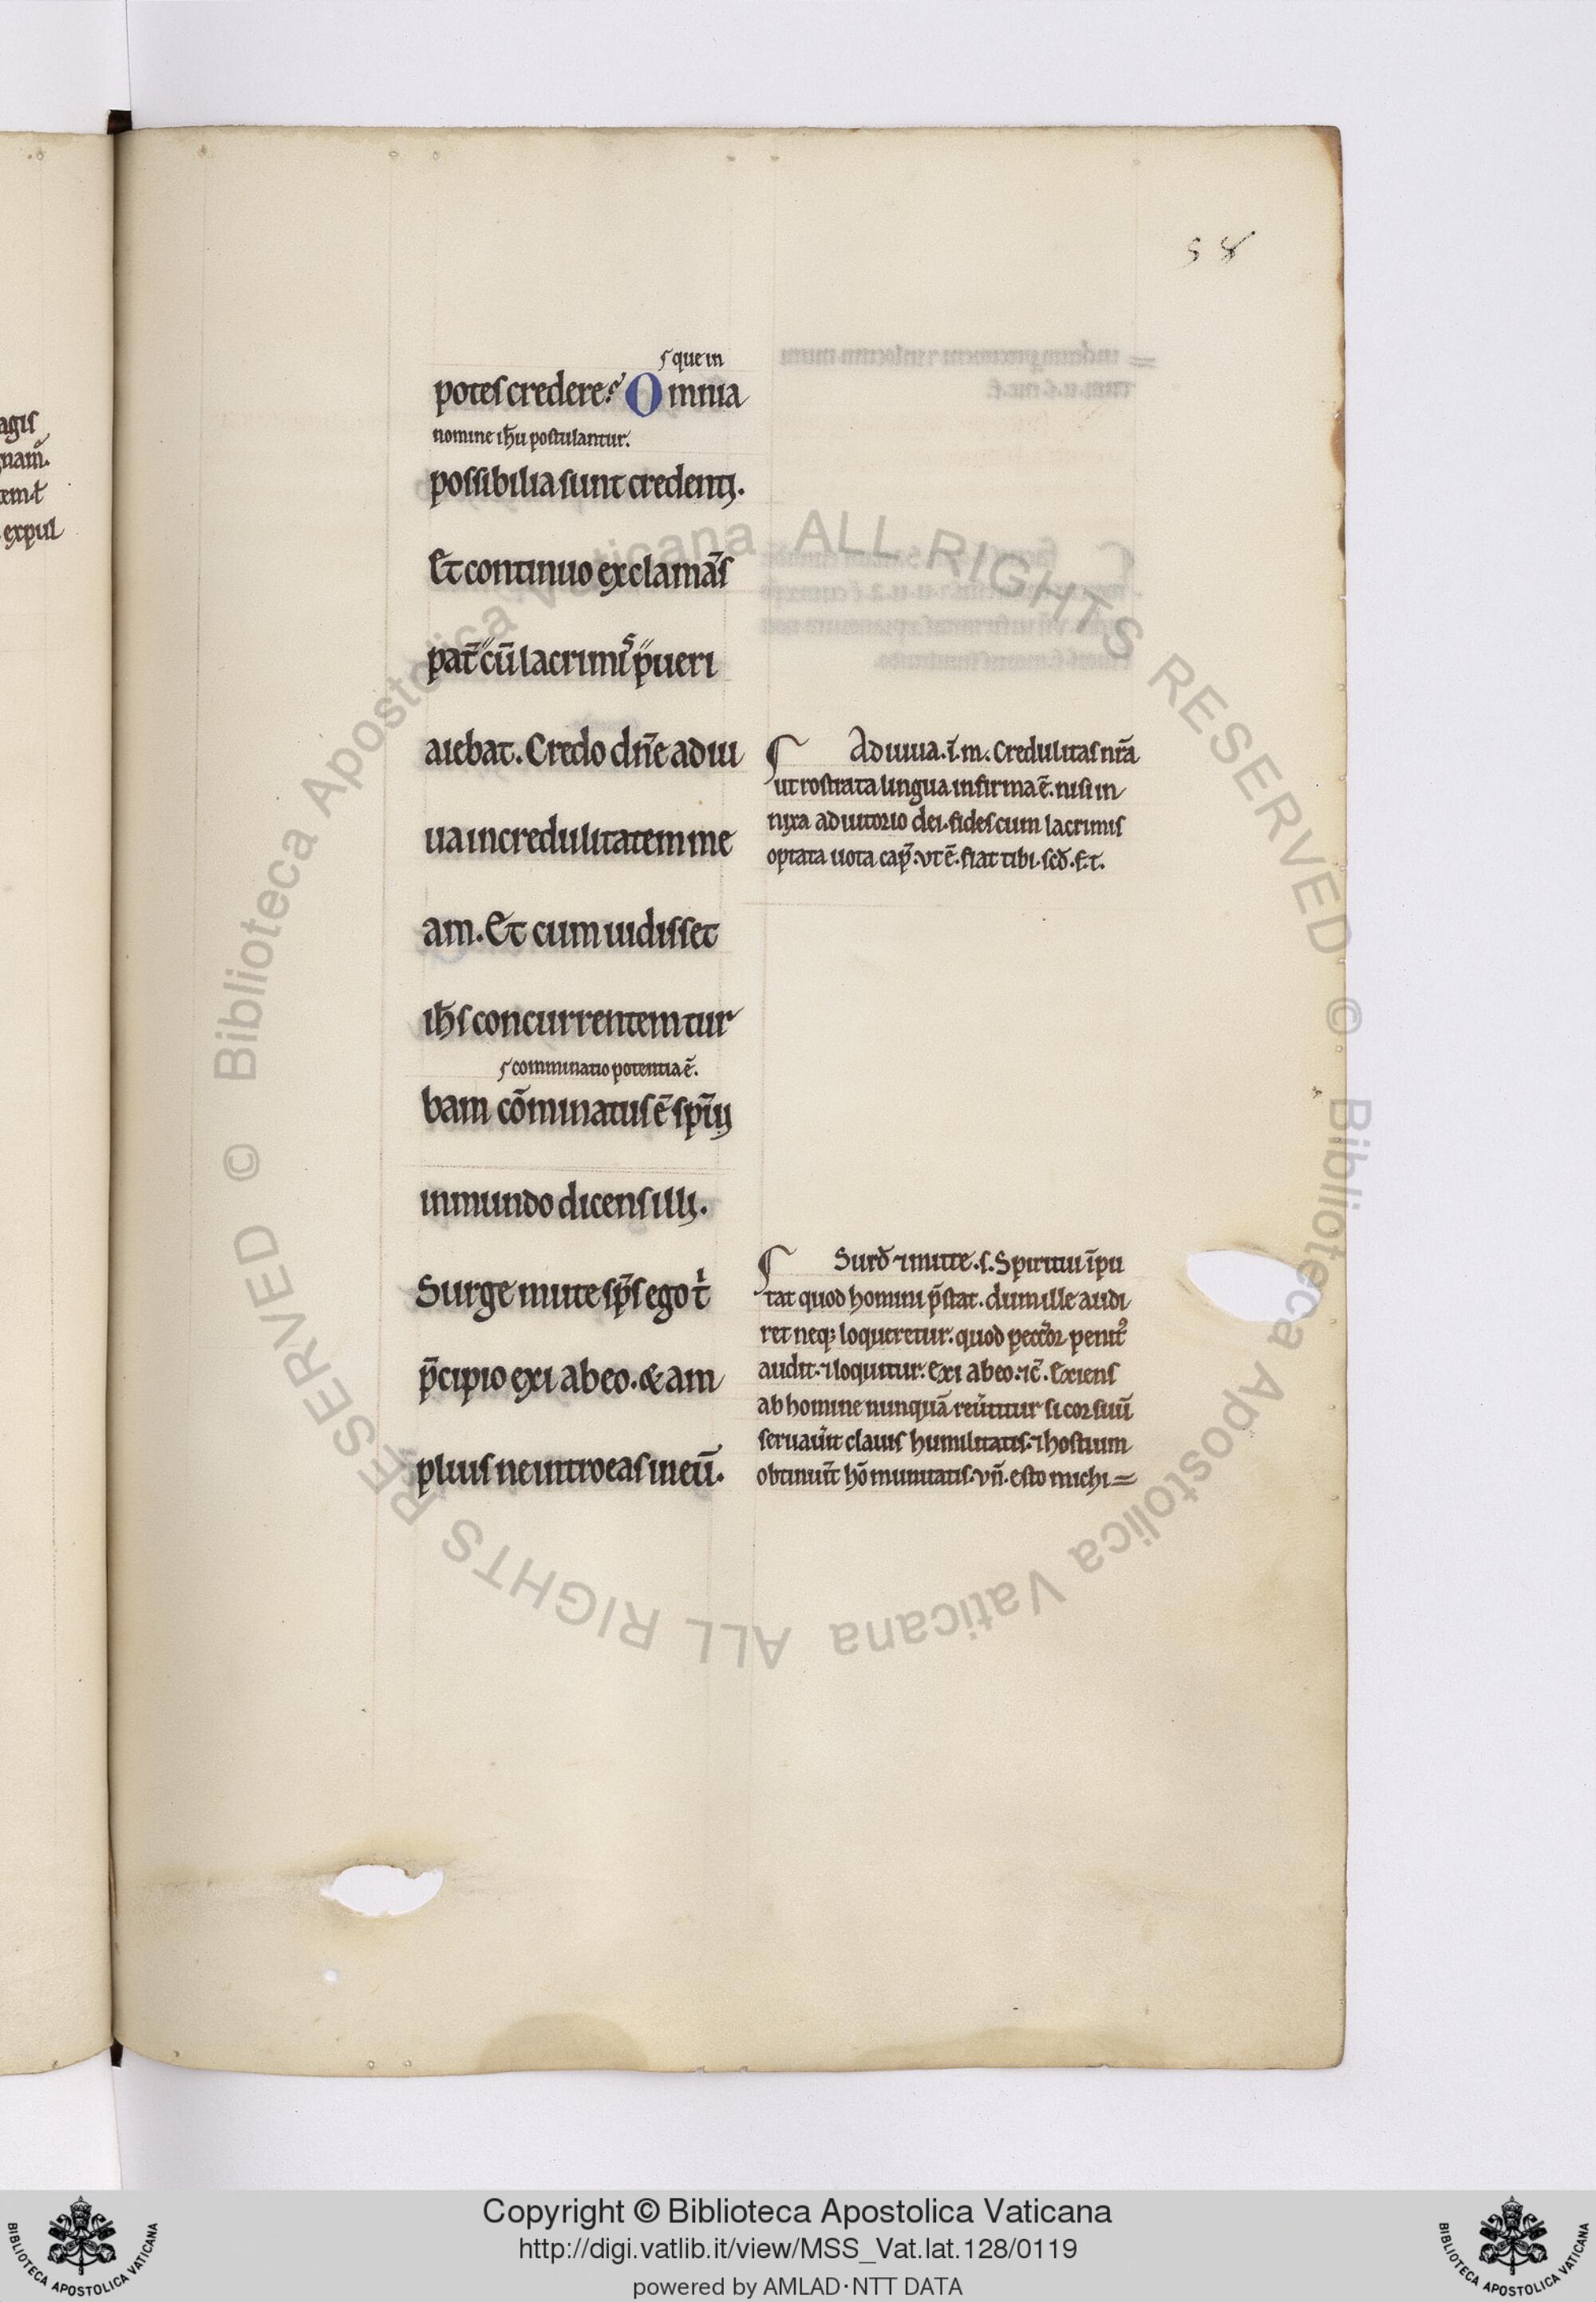 58
ſ que in
poteſ credere? Omnia
nomine ih̄u poſtulantur.
poſſibilia ſunt credentj.
Et continuo exclamãſ
pat̄ cū lacrimiſ pueri
aiebat. Credo dn̄e adiu
ua incredulitatem me
am. Et cum uidiſſet
ih̄ſ concurrentem tur
ſ comminatio potentia ē.
bam cōminatuſ ē ſpīij
inmundo dicenſ illj.
Surge mute ſp̄ſ ego t̾
p̄cipio exi ab eo. & am
pliuſ ne introeaſ in eū.
Adiuua. ī. m. Credulitaſ nr̄a
ut roſtrata lingua infirma ē. niſi in
nixa adiutorio dei. fideſ cum lacrimiſ
optata uota cap̄. vt ē. fiat tibi. ſcd̄. f. t.
Surd̄ ⁊ mute. ſ. Spiritui īpu
tat quod homini p̄ſtat. dum ille audi
ret neq; loqueretur. quod pecc̄or penit᷒
audit. ⁊ loquitur. Exi ab eo. ⁊c̄. Exienſ
ab homine nunquā reu̾titur ſi cor ſuū
ſeruau̾it clauiſ humilitatiſ. ⁊ hoſtium
obtinu̾it hō munitatiſ. vn̄. eſto michi =
agiſ
expul
Copyright © Biblioteca Apostolica Vaticana
http://digi.vatlib.it/view/MSS_Vat.lat.128/0119
powered by AMLAD·NTT DATA
BIBLIOTECA APOSTOLICA VATICANA
BIBLIOTECA APOSTOLICA VATICANA
© Biblioteca Apostolica Vaticana ALL RIGHTS RESERVED
© Biblioteca Apostolica Vaticana ALL RIGHTS RESERVED